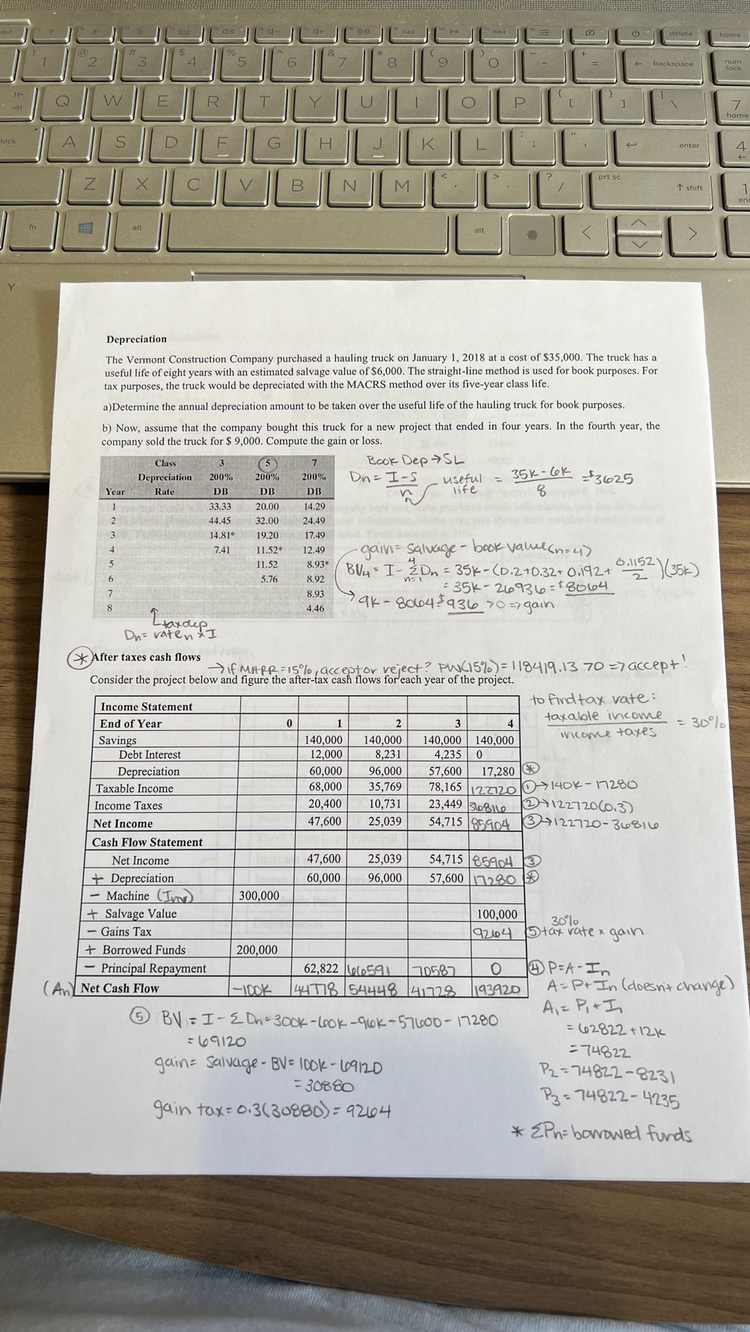 delete
home
1
2
3
4
5
6
7
8
9
0
backspace
num lock
Q W E R T Y U I O P
7
home
lock
A S D F G H J K L
enter
4
Z X C V B N M
prt sc
shift
1
fn
alt
alt
Depreciation
The Vermont Construction Company purchased a hauling truck on January 1, 2018 at a cost of $35,000. The truck has a
useful life of eight years with an estimated salvage value of $6,000. The straight-line method is used for book purposes. For
tax purposes, the truck would be depreciated with the MACRS method over its five-year class life.
a)Determine the annual depreciation amount to be taken over the useful life of the hauling truck for book purposes.
b) Now, assume that the company bought this truck for a new project that ended in four years. In the fourth year, the
company sold the truck for $ 9,000. Compute the gain or loss.
Class 3 5 7
Depreciation 200% 200% 200%
Year Rate DB DB DB
1 33.33 20.00 14.29
2 44.45 32.00 24.49
3 14.81* 19.20 17.49
4 7.41 11.52* 12.49
5 11.52 8.93*
6 5.76 8.92
7 8.93
8 4.46
Book Dep → SL
Dn = I-S / n useful life = 35k-6k / 8 = $3625
gain = salvage - book value (n=4)
BV4 = I - 4Σn=1 Dn = 35k-(0.2+0.32+0.192+ 0.1152/2)(35k)
= 35k - 26936 = $8064
→ 9k - 8064 = $936 >0 => gain
↑ tax dep
Dn = rate n x I
* After taxes cash flows
→ if MARR = 15%, accept or reject? PW(15%) = 118419.13 70 => accept!
Consider the project below and figure the after-tax cash flows for each year of the project.
Income Statement
End of Year 0 1 2 3 4
Savings 140,000 140,000 140,000 140,000
Debt Interest 12,000 8,231 4,235 0
Depreciation 60,000 96,000 57,600 17,280 *
Taxable Income 68,000 35,769 78,165 122720 ① → 140k - 17280
Income Taxes 20,400 10,731 23,449 36816 ② → 122720(0.3)
Net Income 47,600 25,039 54,715 85904 ③ → 122720 - 36816
Cash Flow Statement
Net Income 47,600 25,039 54,715 85904 ③
+ Depreciation 60,000 96,000 57,600 17280 *
- Machine (Inv) 300,000
+ Salvage Value 100,000
- Gains Tax 9264 ⑤ 30% tax rate x gain
+ Borrowed Funds 200,000
- Principal Repayment 62,822 66591 70587 0
(An) Net Cash Flow -100k 44778 54448 41728 193920
to find tax rate:
taxable income / income taxes = 30%
④ P = A - In
A = P + In (doesn't change)
A1 = P1 + I1
= 62822 + 12k
= 74822
P2 = 74822 - 8231
P3 = 74822 - 4235
* ΣPn = borrowed funds
⑤ BV = I - ΣDn = 300k - 60k - 96k - 57600 - 17280
= 69120
gain = Salvage - BV = 100k - 69120
= 30880
gain tax = 0.3(30880) = 9264